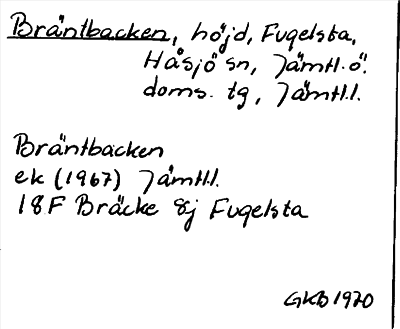 Bräntbacken, höjd, Fugelsta,
Håsjö sn, Jämtl. ö.
doms. tg, Jämtl.l.
Bräntbacken
ek (1967) Jämtl.l.
18F Bräcke 8j Fugelsta
GKB 1970